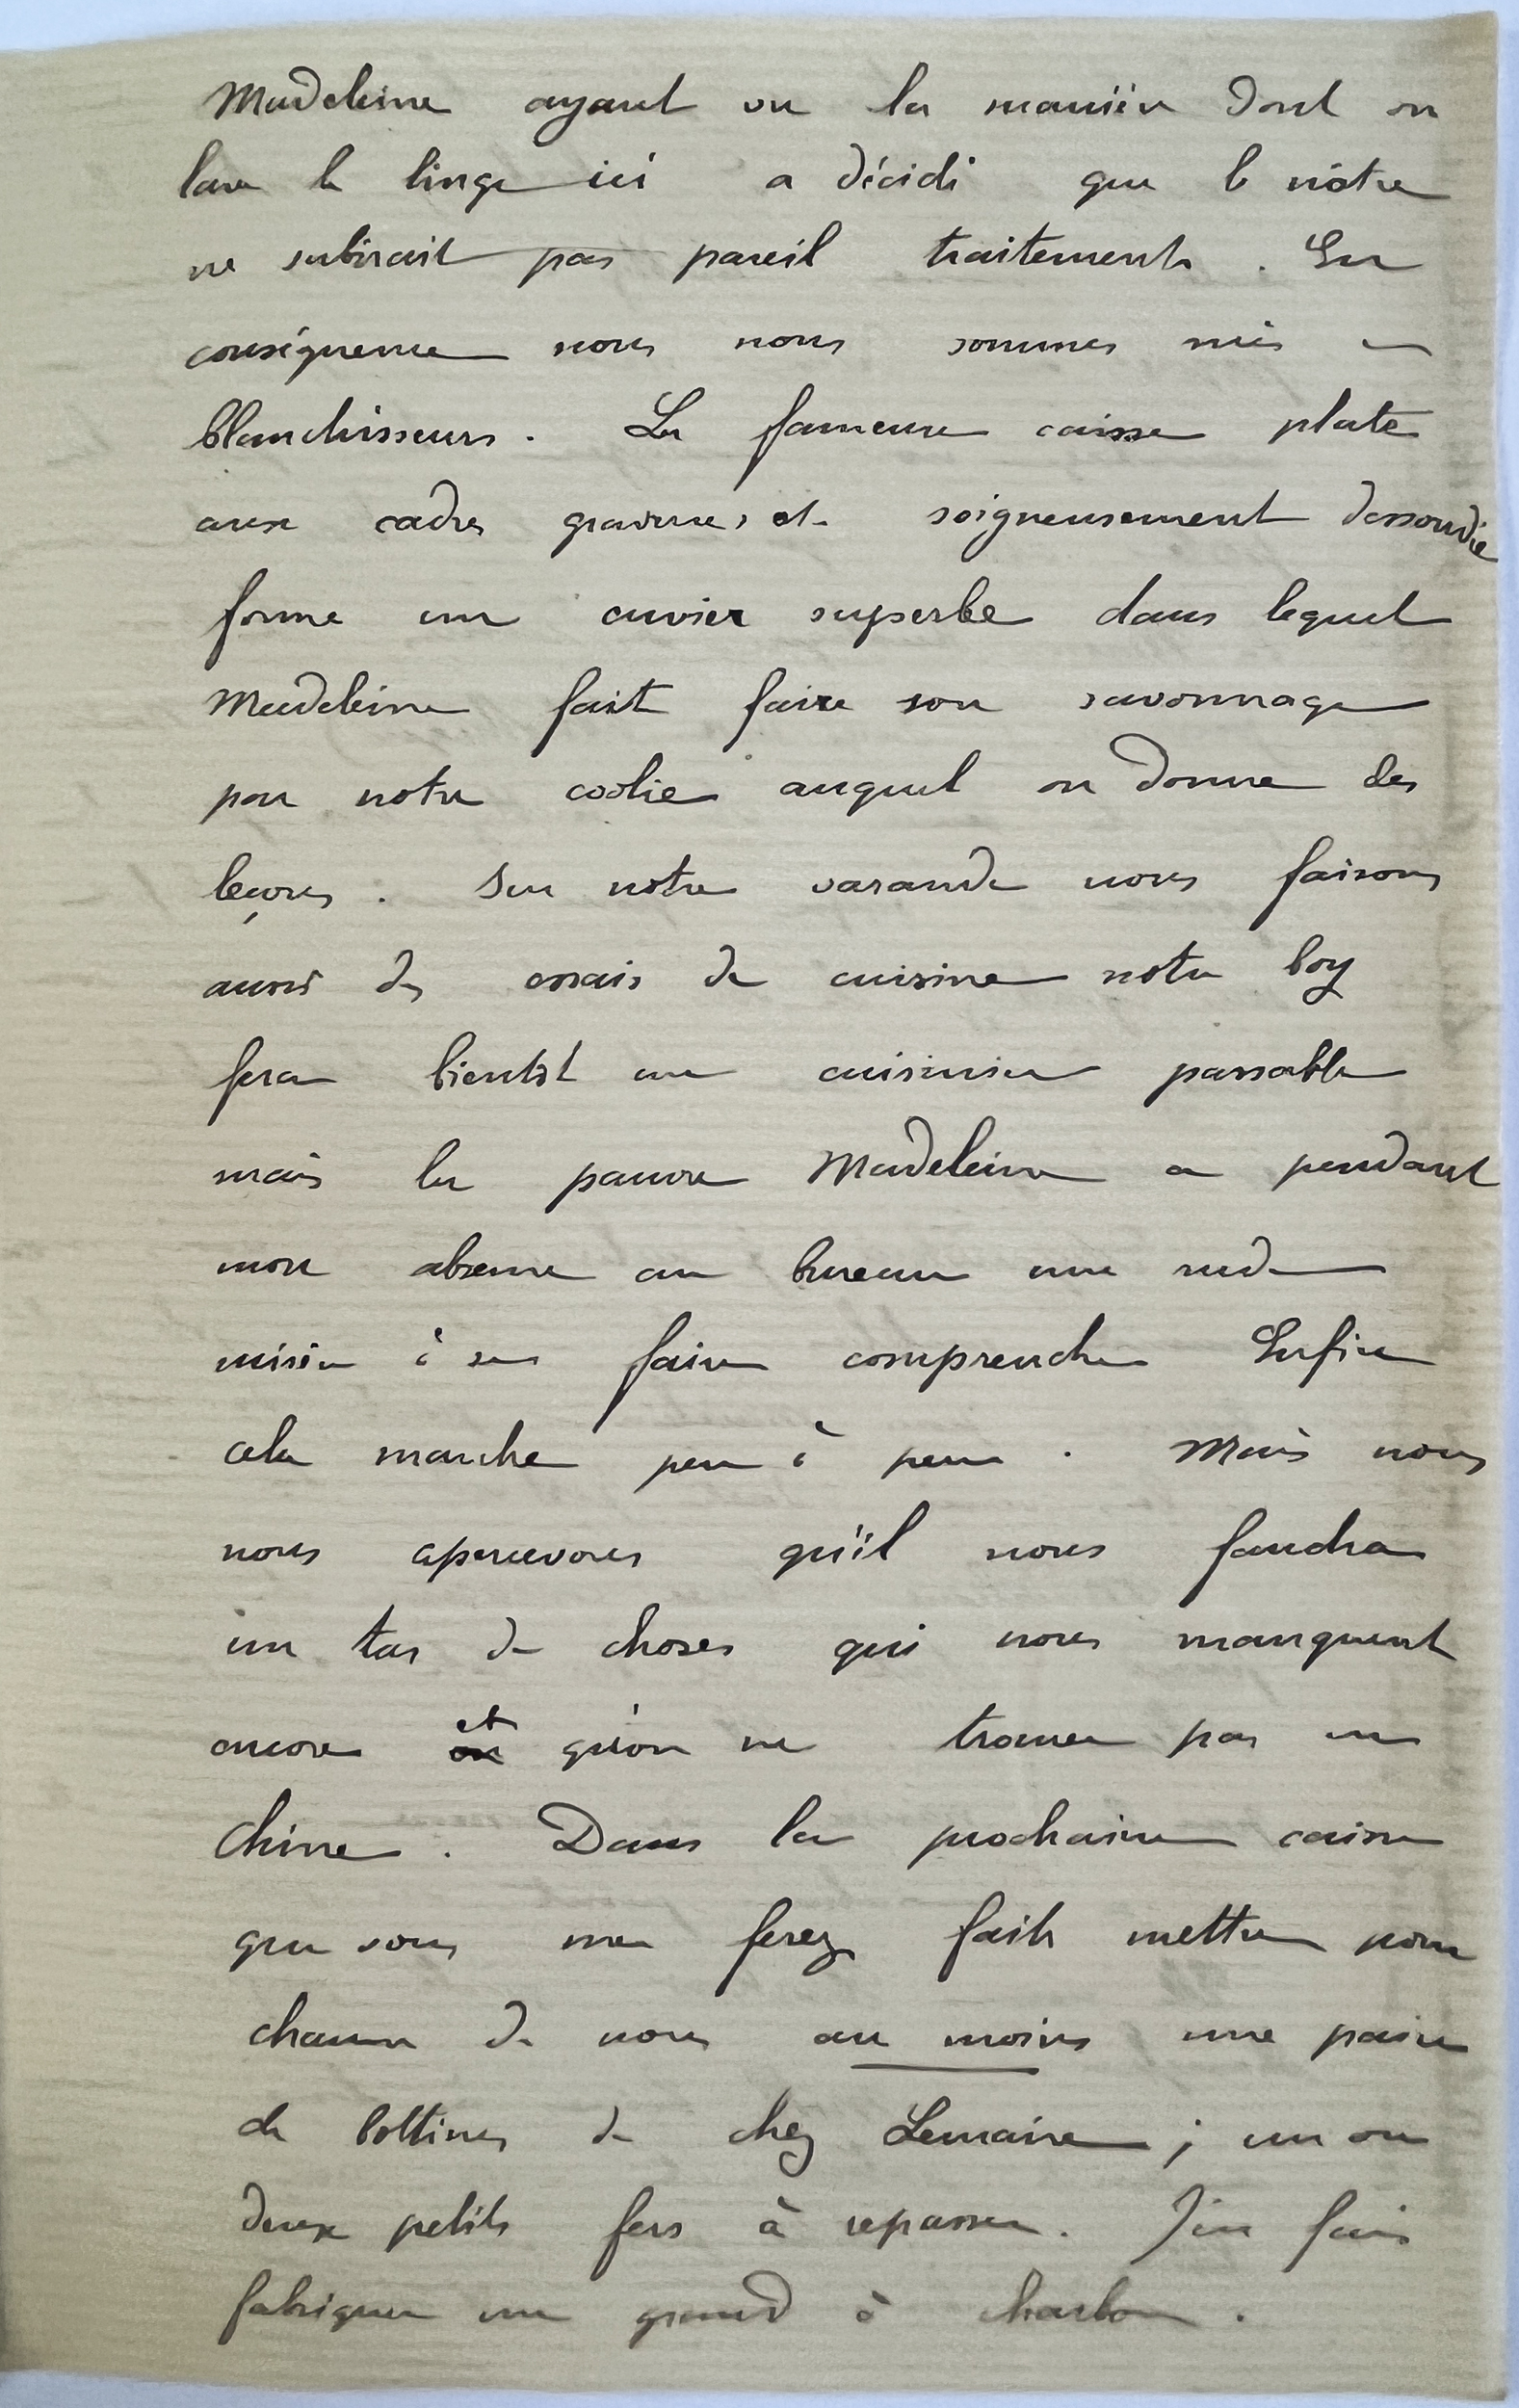 Madeleine ayant vu la manière dont on
lave le linge ici a décidé que le nôtre
ne subirait pas pareil traitement. En
conséquence nous nous sommes mis en
blanchisseurs. La fameuse caisse plate
aux cadres gravures, et soigneusement dessoudée
forme un cuvier superbe dans lequel
Madeleine fait faire son savonnage
par notre coolie auquel on donne des
leçons. Sur notre varande nous faisons
aussi des essais de cuisine notre boy
fera bientôt un cuisinier passable
mais la pauvre Madeleine a pendant
mon absence au bureau une rude
misère à se faire comprendre Enfin
cela marche peu à peu. Mais nous
nous apercevons qu'il nous faudra
un tas de choses qui nous manquent
encore et qu'on ne trouve pas en
Chine. Dans la prochaine caisse
que vous me ferez faites mettre pour
chacun de nous au moins une paire
de bottines de chez Lemaire ; un ou
deux petits fers à repasser. J'en fais
fabriquer un grand à charbon.